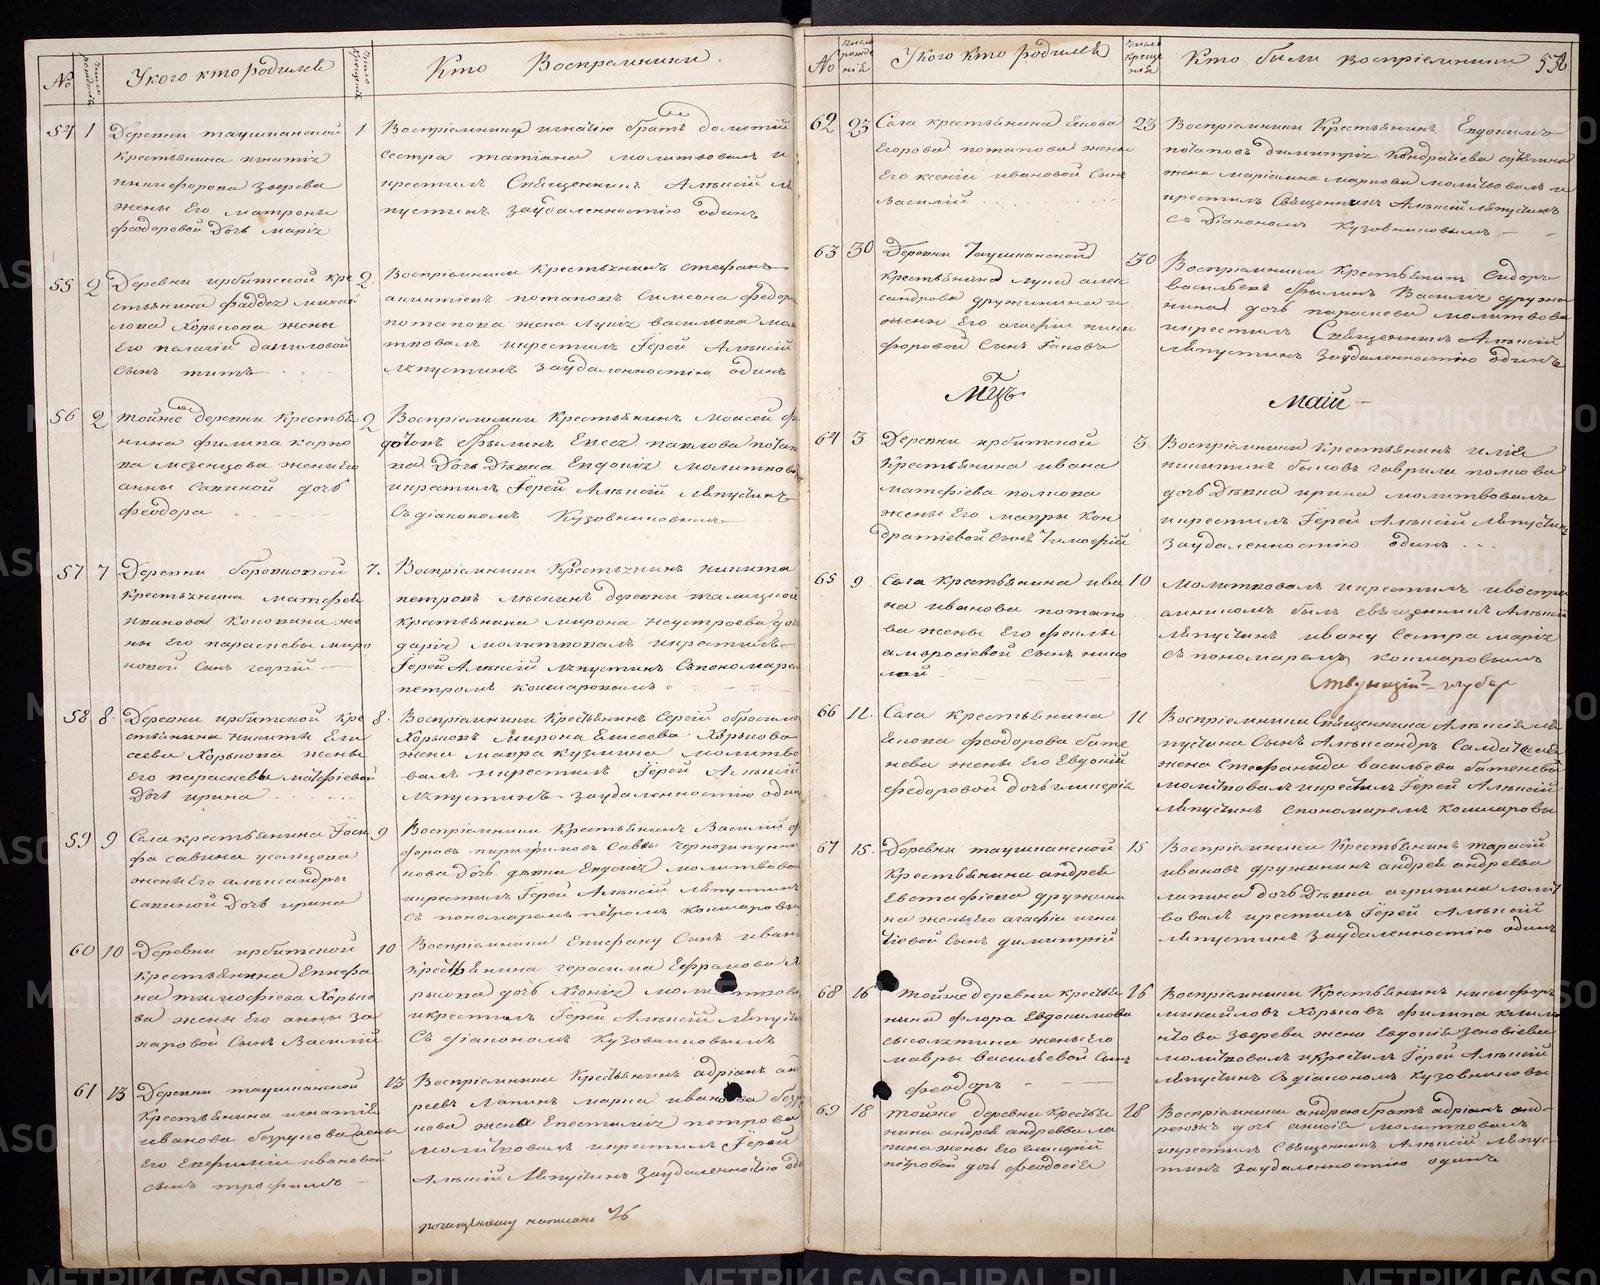 №
число рождения
У кого кто родился
число крещения
Кто Восприемники.
54 1 Деревни таушканской 1
крестьянина игнатія
никифорова зверева
жены Его матроны
феодоровой Дочь марія
Воспріемники игнатію братъ дометій
сестра татіана молитвовалъ и
крестилъ Священникъ Алексій Ля
пустинъ заудаленностію одинъ
55 2 Деревни ирбитской кре 2
стьянина фаддея михаи
лова Хорькова жены
Его пелагіи даниловой
Сынъ титъ
Воспріемники Крестьянинъ стефанъ
потаповъ Симеона федора
потапова жена Лукія васильева мол
твовалъ икрестилъ Іерей Алексій
Ляпустинъ заудаленностію одинъ
56 2 тойже деревни Крестья 2
нина филипа карпо
ва мезенцова жены Его
анны савиной дочь
феодора
Воспріемники Крестьянинъ Моисей
Фрылинъ Елисея павлова потап
ва Дочь Девка Евдокія молитвов
икрестилъ Іерей Алексій Ляпустинъ
Съ діакономъ Кузовниковымъ
57 7 Деревни боровковой 7.
крестьянина матфея
Иванова Коковина же
ны Его парасковьи миро
новой Сынъ георгій
Воспріемники Крестьянинъ никита
петровъ деревни талицкой
крестьянина мирона неустроева доч
дарія молитвовалъ икрестилъ
Іерей Алексій Ляпустинъ Съпономаре
петромъ кокшаровымъ
58 8. Деревни ирбитской Кре 8.
стьянина никиты Ели
сеева Хорькова жены
Его парасковьи матфіевой
Дочь ирина
Воспріемники Крестьянинъ Сергій
Хорьковъ Мирона Елисеева Хорькова
жена мавра кузмина молитво
валъ икрестилъ Іерей Алексій
Ляпустинъ заудаленностію один
59 9 Села крестьянина Іоси 9
фа савина усольцова
жены Его александры
Савиной Дочь ирина
Воспріемники Крестьянинъ Василій
форовъ Саввы
нова Дочь девка Евдокія молитвова
икрестилъ Іерей Алексій Ляпустинъ
Съ пономаремъ петромъ кокшаровы
60 10 Деревни ирбитской 10
крестьянина Епифа
на тимофіева Хорько
ва жены Его анны за
харовой Сынъ Василій
Воспріемники Епифану Сынъ иван
крестьянина герасима Ефрамова Х
рькова дочь Хіонія молитвова
икрестилъ Іерей Алексій Ляпусти
Съ діакономъ Кузовниковымъ
61 13 Деревни таушканской 13
Крестьянина игнатія
иванова безрукова жены
Его Евфиміи ивановой
сынъ трофимъ
Воспріемники Крестьянинъ адріанъ ан
реевъ Лапинъ марка иванова безр
кова жена Епистимія петрова
молитвовалъ икрестилъ Іерей
Алексій Ляпустинъ Заудаленностію од
№
число рожде нія
У кого кто родился
число креще нія
Кто были воспріемники
62 23 Села крестьянина Якова 23
Егорова потапова жены
Его ксеніи ивановой Сынъ
Василій
Воспріемники Крестьянинъ Евдокимъ
потаповъ димитрія Кондратіева
жена маріамна маркова молитвовалъ и
крестилъ Священникъ Алексій Ляпустинъ
съ Діакономъ Кузовниковымъ
63 30 Деревни Таушканской 30
крестьянина луки алек
сандрова дружинина и
жены Его агафіи ники
форовой Сынъ Іаковъ
Воспріемники Крестьянинъ Сидоръ
васильевъ Фрылинъ Василія дружи
нина дочь параскева молитвова
икрестилъ Священникъ Алексій
Ляпустинъ Заудаленностію одинъ
Мцъ маій
64 3 Деревни ирбитской 3
Крестьянина ивана
матфіева полкова
жены Его мавры Кон
дратіевой Сынъ Тимофій
Воспріемники Крестьянинъ илія
никитинъ быковъ гаврила полкова
дочь Девка ирина молитвовалъ
икрестилъ Іерей Алексій Ляпустинъ
заудаленностію одинъ
65 9. Села крестьянина ива 10
на иванова потапо
ва жены Его феклы
амвросіевой Сынъ нико
лай
Молитвовалъ икрестилъ ивоспри
емникомъ былъ священникъ Алексій
Ляпустинъ ивану Сестра марія
съ пономаремъ кокшаровымъ
66 11. Села крестьянина 11
Якова феодорова бате
нева жены Его Евдокіи
федоровой дочь гликерія
Воспріемники Священника Алексія Ля
пустина Сынъ Александръ Салдат
жена Стефанида васильева батеневой
молитвовалъ икрестилъ Іерей Алексій
Ляпустинъ спономаремъ кокшаровы
67 15. Деревни таушканской 15
Крестьянина андрея
Евстафіева дружини
на жены Его агафіи игна
тіевой Сынъ димитрій
Воспріемники Крестьянинъ тарасій
ивановъ дружининъ андрей андреева
лапина дочь Девка агрипина молит
вовалъ крестилъ Іерей Алексій
Ляпустинъ Заудаленностію одинъ
68 16 тойже деревни крестья 16
нина флора Евдокимова
сысолятина жены Его
мавры васильевой сынъ
феодоръ
Воспріемники Крестьянинъ никифоръ
михайловъ Хорьковъ филипа клим
нтова Зверева жена Евдокія зеновіева
молитвовалъ икрестилъ Іерей Алексій
Ляпустинъ Съдіакономъ Кузовниковы
69 18 тойже деревни крестья 18
нина андрея андреева ла
пина жены Его гликеріи
петровой дочь феодосія
Воспріемники андрею братъ адріанъ анд-
реевъ дочь анисія молитвовалъ
икрестилъ Священникъ Алексій Ляпус-
тинъ Заудаленностію одинъ
METRIKI.GASO-URAL.RU